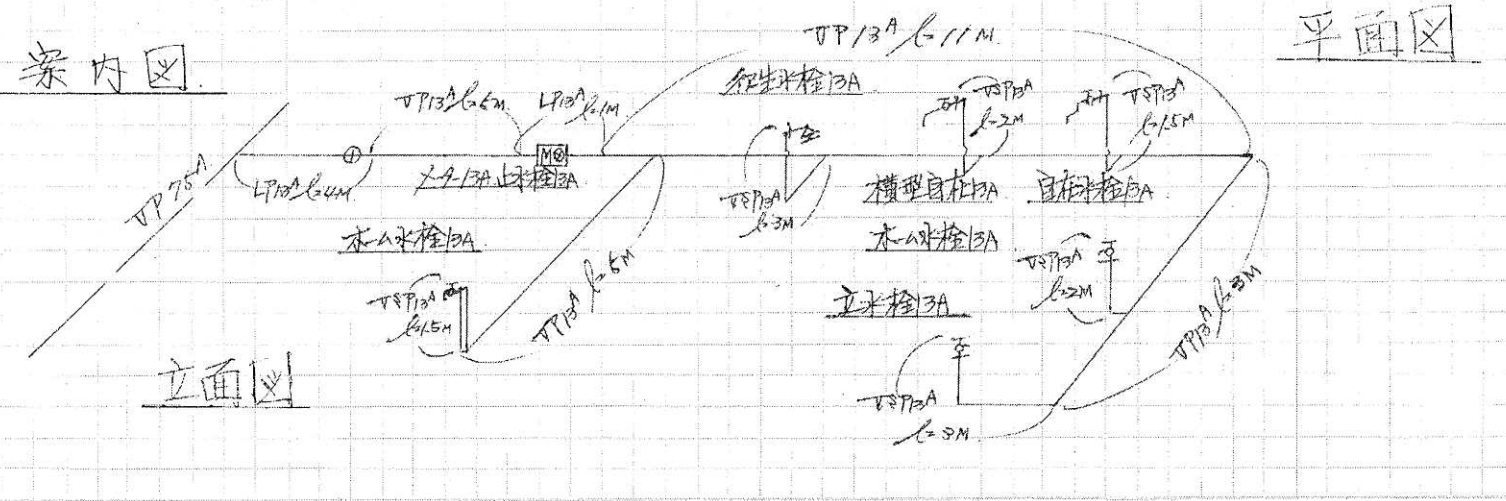 案内図.
平面図
VP13A l=11M
衛生水栓13A
VP13A l=5M
LP13A l=1M
VSP13A
l=2M
VSP13A
l=1.5M
VP75A
LP13A l=4M
M
メーター13A 止水栓13A
VSP13A
l=3M
横型自在13A
自在水栓13A
ホーム水栓13A
ホーム水栓13A
VSP13A
l=1.5M
VP13A l=5M
VSP13A
l=2M
立水栓13A
VP13A l=3M
VSP13A
l=3M
立面図